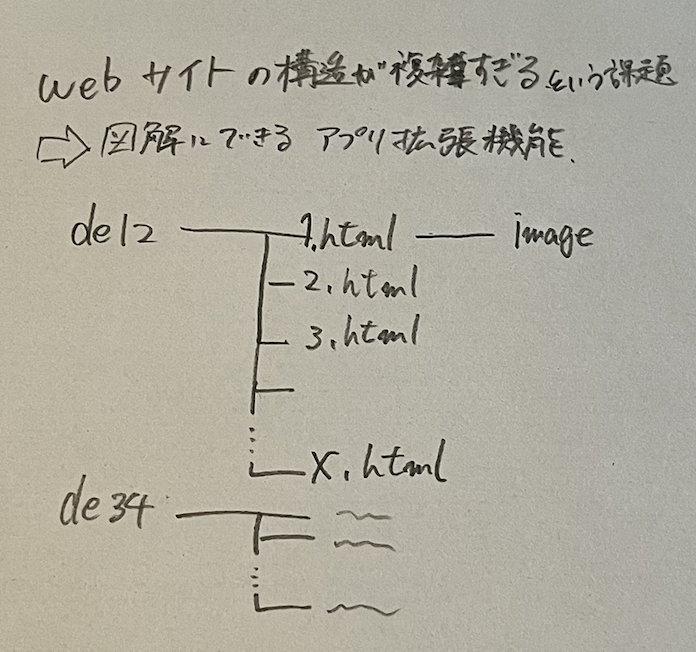 webサイトの構造が複雑すぎるという課題
⇨図解にできるアプリ拡張機能.
de12 1.html image
2.html
3.html
X.html
de34